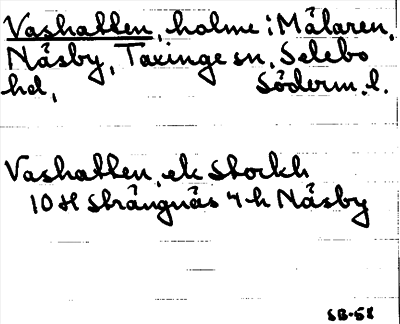 Vashatten, holme i Mälaren,
Näsby, Taxinge sn, Selebo
hd, Söderm. l.
Vashatten, ek Stockh
10 SH Strängnäs 4 h Näsby
SB-58